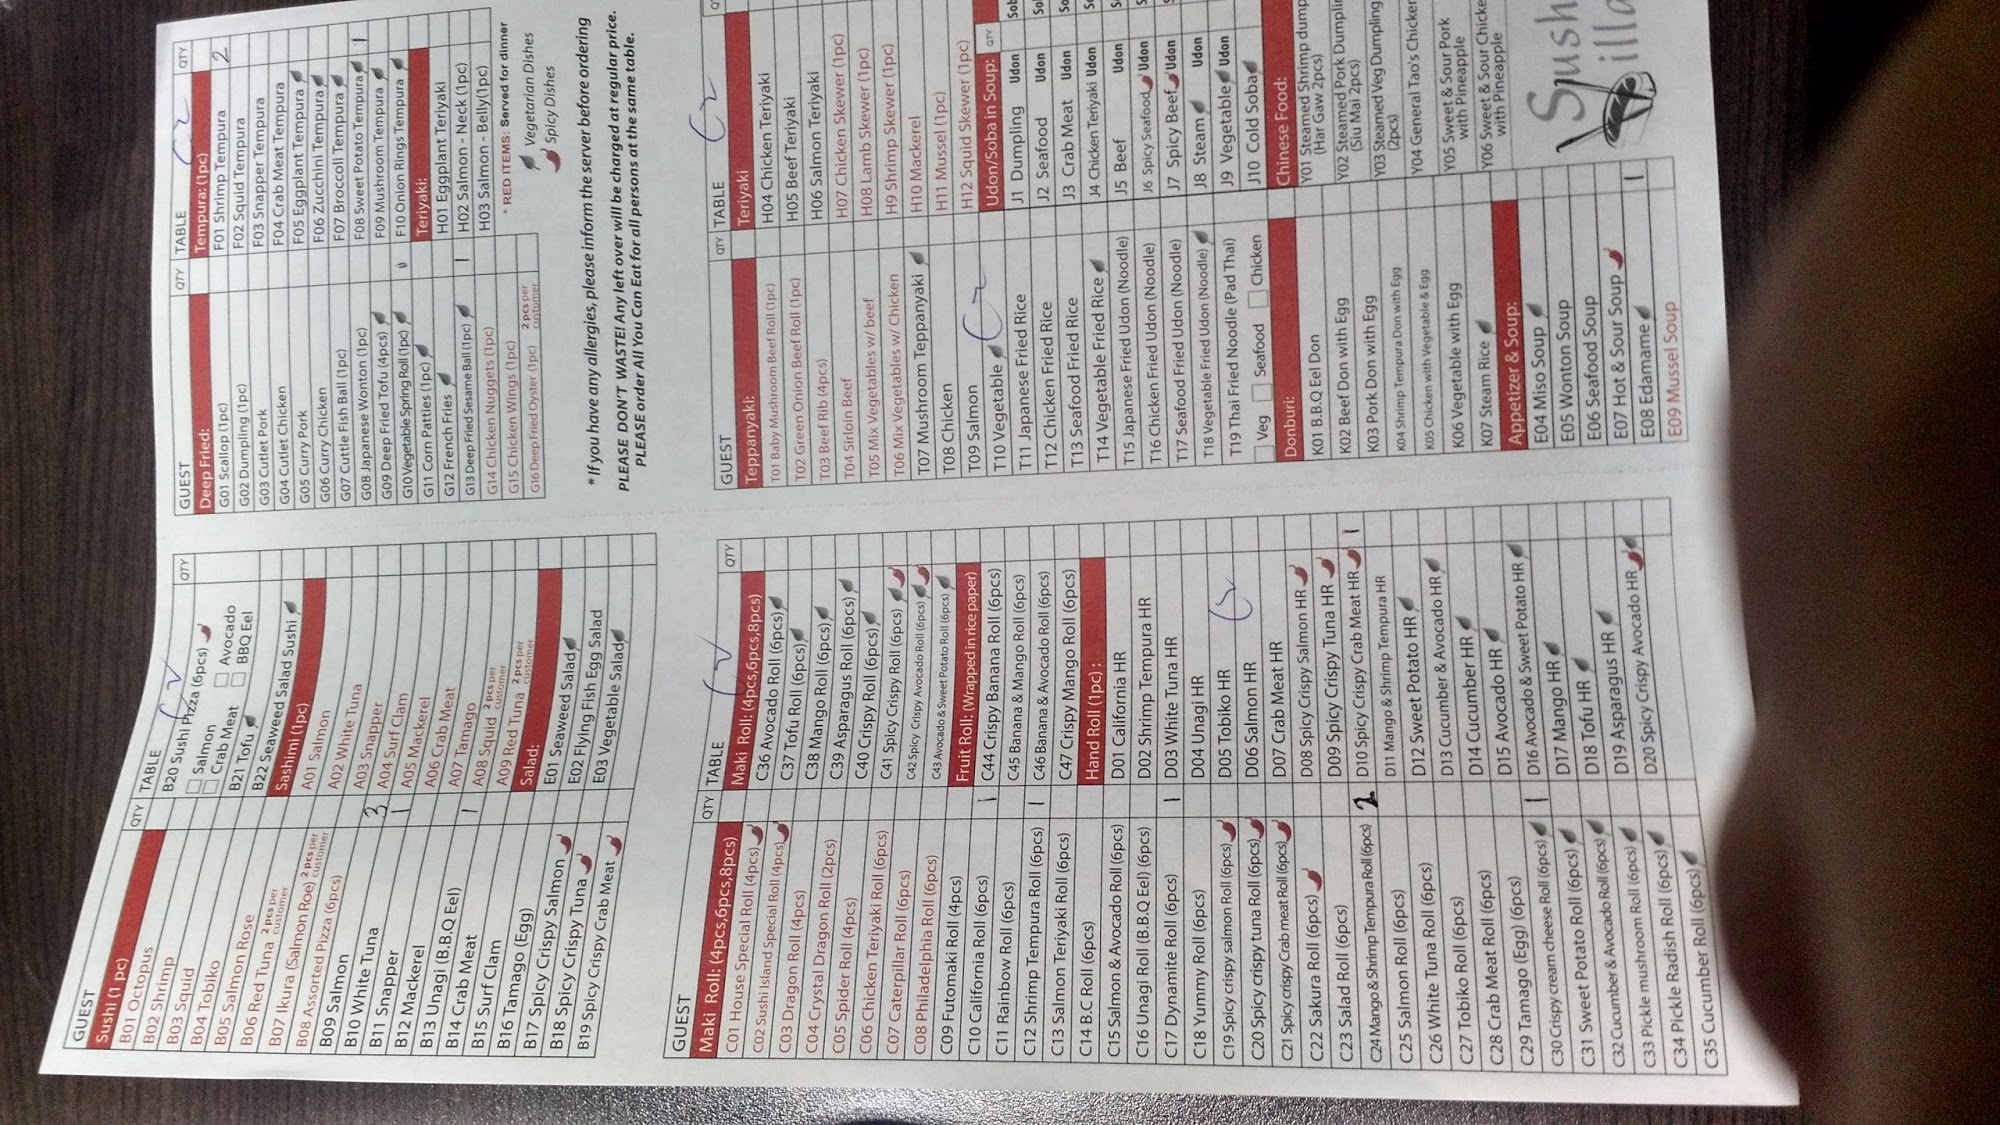 GUEST
QTY
TABLE
QTY
Sushi (1 pc)
B01 Octopus
B02 Shrimp
B03 Squid
B04 Tobiko
B05 Salmon Rose
B06 Red Tuna 2 pcs per customer
B07 Ikura (Salmon Roe) 2 pcs per customer
B08 Assorted Pizza (6pcs)
B09 Salmon
B10 White Tuna
B11 Snapper 3
B12 Mackerel 1
B13 Unagi (B.B.Q Eel)
B14 Crab Meat
B15 Surf Clam 1
B16 Tamago (Egg)
B17 Spicy Crispy Salmon
B18 Spicy Crispy Tuna
B19 Spicy Crispy Crab Meat
B20 Sushi Pizza (6pcs)
Salmon Avocado
Crab Meat BBQ Eel
B21 Tofu
B22 Seaweed Salad Sushi
Sashimi (1pc)
A01 Salmon
A02 White Tuna
A03 Snapper
A04 Surf Clam
A05 Mackerel
A06 Crab Meat
A07 Tamago
A08 Squid 2 pcs per customer
A09 Red Tuna 2 pcs per customer
Salad:
E01 Seaweed Salad
E02 Flying Fish Egg Salad
E03 Vegetable Salad
GUEST
QTY
TABLE
QTY
Deep Fried:
G01 Scallop (1pc)
G02 Dumpling (1pc)
G03 Cutlet Pork
G04 Cutlet Chicken
G05 Curry Pork
G06 Curry Chicken
G07 Cuttle Fish Ball (1pc)
G08 Japanese Wonton (1pc)
G09 Deep Fried Tofu (4pcs)
G10 Vegetable Spring Roll (1pc)
G11 Corn Patties (1pc)
G12 French Fries
G13 Deep Fried Sesame Ball (1pc) 1
G14 Chicken Nuggets (1pc)
G15 Chicken Wings (1pc)
G16 Deep Fried Oyster (1pc) 2 pcs per customer
Tempura: (1pc)
F01 Shrimp Tempura 2
F02 Squid Tempura
F03 Snapper Tempura
F04 Crab Meat Tempura
F05 Eggplant Tempura
F06 Zucchini Tempura
F07 Broccoli Tempura
F08 Sweet Potato Tempura 1
F09 Mushroom Tempura
F10 Onion Rings Tempura
Teriyaki:
H01 Eggplant Teriyaki
H02 Salmon - Neck (1pc)
H03 Salmon - Belly(1pc)
* RED ITEMS: Served for dinner
Vegetarian Dishes
Spicy Dishes
*If you have any allergies, please inform the server before ordering
PLEASE DON'T WASTE! Any left over will be charged at regular price.
PLEASE order All You Can Eat for all persons at the same table.
GUEST
QTY
TABLE
QTY
Maki Roll: (4pcs,6pcs,8pcs)
C01 House Special Roll (4pcs)
C02 Sushi Island Special Roll (4pcs)
C03 Dragon Roll (4pcs)
C04 Crystal Dragon Roll (2pcs)
C05 Spider Roll (4pcs)
C06 Chicken Teriyaki Roll (6pcs)
C07 Caterpillar Roll (6pcs)
C08 Philadelphia Roll (6pcs)
C09 Futomaki Roll (4pcs)
C10 California Roll (6pcs) 1
C11 Rainbow Roll (6pcs)
C12 Shrimp Tempura Roll (6pcs) 1
C13 Salmon Teriyaki Roll (6pcs)
C14 B.C Roll (6pcs)
C15 Salmon & Avocado Roll (6pcs)
C16 Unagi Roll (B.B.Q Eel) (6pcs)
C17 Dynamite Roll (6pcs) 1
C18 Yummy Roll (6pcs)
C19 Spicy crispy salmon Roll (6pcs)
C20 Spicy crispy tuna Roll (6pcs)
C21 Spicy crispy Crab meat Roll (6pcs)
C22 Sakura Roll (6pcs)
C23 Salad Roll (6pcs)
C24 Mango & Shrimp Tempura Roll (6pcs) 2
C25 Salmon Roll (6pcs)
C26 White Tuna Roll (6pcs)
C27 Tobiko Roll (6pcs)
C28 Crab Meat Roll (6pcs)
C29 Tamago (Egg) (6pcs)
C30 Crispy cream cheese Roll (6pcs) 1
C31 Sweet Potato Roll (6pcs)
C32 Cucumber & Avocado Roll (6pcs)
C33 Pickle mushroom Roll (6pcs)
C34 Pickle Radish Roll (6pcs)
C35 Cucumber Roll (6pcs)
Maki Roll: (4pcs,6pcs,8pcs)
C36 Avocado Roll (6pcs)
C37 Tofu Roll (6pcs)
C38 Mango Roll (6pcs)
C39 Asparagus Roll (6pcs)
C40 Crispy Roll (6pcs)
C41 Spicy Crispy Roll (6pcs)
C42 Spicy Crispy Avocado Roll (6pcs)
C43 Avocado & Sweet Potato Roll (6pcs)
Fruit Roll: (Wrapped in rice paper)
C44 Crispy Banana Roll (6pcs)
C45 Banana & Mango Roll (6pcs)
C46 Banana & Avocado Roll (6pcs)
C47 Crispy Mango Roll (6pcs)
Hand Roll (1pc) :
D01 California HR
D02 Shrimp Tempura HR
D03 White Tuna HR
D04 Unagi HR
D05 Tobiko HR
D06 Salmon HR
D07 Crab Meat HR
D08 Spicy Crispy Salmon HR
D09 Spicy Crispy Tuna HR
D10 Spicy Crispy Crab Meat HR 1
D11 Mango & Shrimp Tempura HR
D12 Sweet Potato HR
D13 Cucumber & Avocado HR
D14 Cucumber HR
D15 Avocado HR
D16 Avocado & Sweet Potato HR
D17 Mango HR
D18 Tofu HR
D19 Asparagus HR
D20 Spicy Crispy Avocado HR
GUEST
QTY
TABLE
QT
Teppanyaki:
T01 Baby Mushroom Beef Roll (1pc)
T02 Green Onion Beef Roll (1pc)
T03 Beef Rib (4pcs)
T04 Sirloin Beef
T05 Mix Vegetables w/ beef
T06 Mix Vegetables w/ Chicken
T07 Mushroom Teppanyaki
T08 Chicken
T09 Salmon
T10 Vegetable
T11 Japanese Fried Rice
T12 Chicken Fried Rice
T13 Seafood Fried Rice
T14 Vegetable Fried Rice
T15 Japanese Fried Udon (Noodle)
T16 Chicken Fried Udon (Noodle)
T17 Seafood Fried Udon (Noodle)
T18 Vegetable Fried Udon (Noodle)
T19 Thai Fried Noodle (Pad Thai)
Veg Seafood Chicken
Donburi:
K01 B.B.Q Eel Don
K02 Beef Don with Egg
K03 Pork Don with Egg
K04 Shrimp Tempura Don with Egg
K05 Chicken with Vegetable & Egg
K06 Vegetable with Egg
K07 Steam Rice
Appetizer & Soup:
E04 Miso Soup
E05 Wonton Soup
E06 Seafood Soup
E07 Hot & Sour Soup
E08 Edamame 1
E09 Mussel Soup
Teriyaki
H04 Chicken Teriyaki
H05 Beef Teriyaki
H06 Salmon Teriyaki
H07 Chicken Skewer (1pc)
H08 Lamb Skewer (1pc)
H09 Shrimp Skewer (1pc)
H10 Mackerel
H11 Mussel (1pc)
H12 Squid Skewer (1pc)
Udon/Soba in Soup: QTY
J1 Dumpling Udon
J2 Seafood Udon
J3 Crab Meat Udon
J4 Chicken Teriyaki Udon
J5 Beef Udon
J6 Spicy Seafood Udon
J7 Spicy Beef Udon
J8 Steam Udon
J9 Vegetable Udon
J10 Cold Soba
Chinese Food:
Y01 Steamed Shrimp dump
(Har Gaw 2pcs)
Y02 Steamed Pork Dumplin
(Siu Mai 2pcs)
Y03 Steamed Veg Dumpling
(2pcs)
Y04 General Tao's Chicken
Y05 Sweet & Sour Pork
with Pineapple
Y06 Sweet & Sour Chicke
with Pineapple
Sush
illa